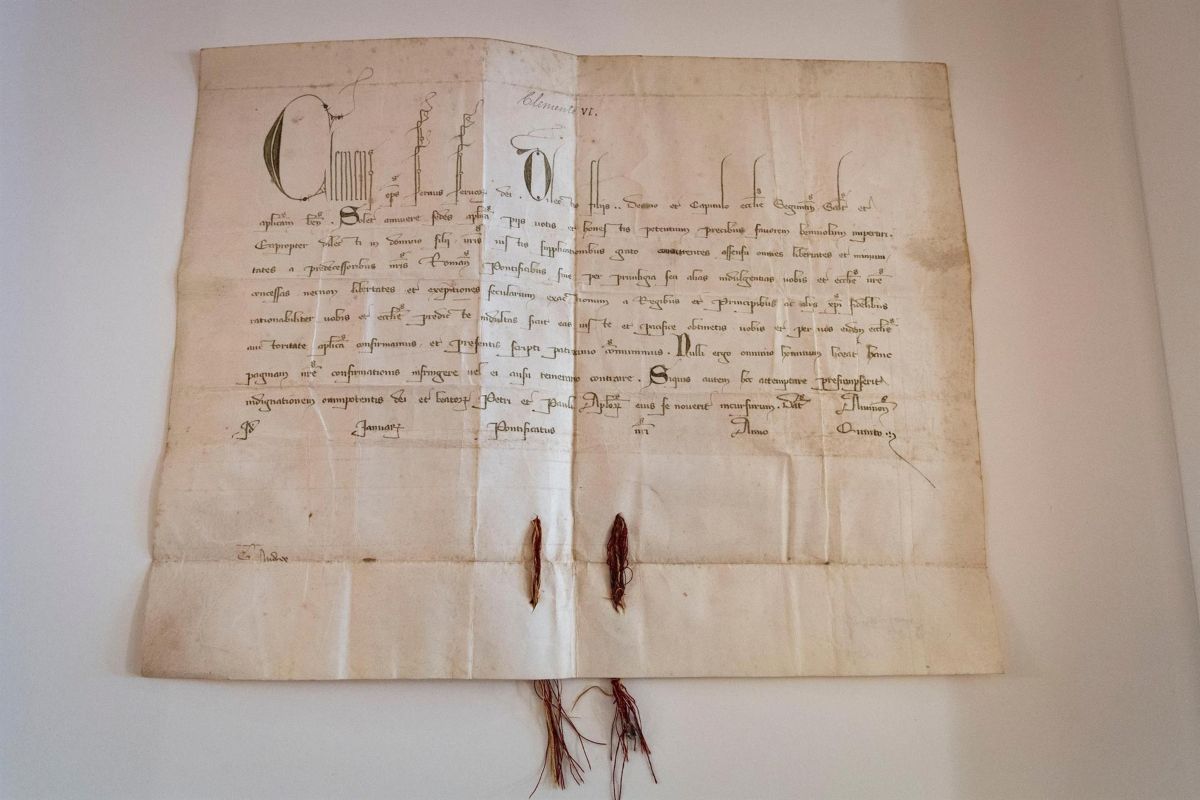 Clemente VI.
Clemens eps servus servor dei. Dilectis filiis.. Decano et Capitulo ecclie Seguntin Salt et
aplicam ben. Solet annuere sedes aplica piis votis et honestis petentium precibus favorem benivolum impertiri.
Eapropter dilecti in domino filii vris iustis supplicationibus grato concurrentes assensu omnes libertates et immuni
tates a predecessoribus nris Roman Pontificibus sive per privilegia seu alias indulgentias vobis et ecclie vre
concessas necnon libertates et exemptiones secularium exactionum a Regibus et Principibus ac aliis xpi fidelibus
rationabiliter vobis et ecclie predicte indultas sicut eas iuste et pacifice obtinetis vobis et per vos eidem ecclie
auctoritate aplica confirmamus et presentis scripti patrocinio communimus. Nulli ergo omnino hominum liceat hanc
paginam nre confirmationis infringere vel ei ausu temerario contraire. Siquis autem hoc attemptare presumpserit
indignationem omnipotentis dei et beator Petri et Pauli Aplor eius se noverit incursurum. Dat Avinion
Id Januar Pontificatus nri Anno Quinto